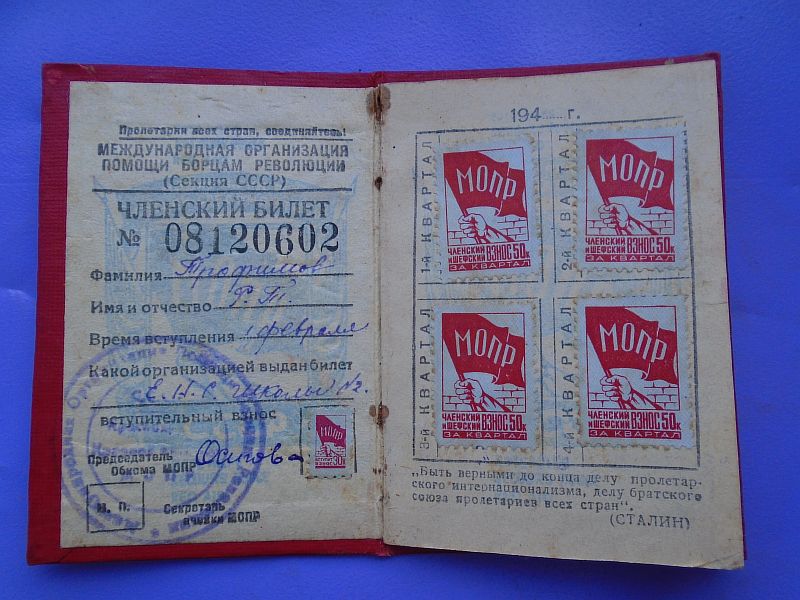 Пролетарии всех стран, соединяйтесь!
МЕЖДУНАРОДНАЯ ОРГАНИЗАЦИЯ
ПОМОЩИ БОРЦАМ РЕВОЛЮЦИИ
(Секция СССР)
ЧЛЕНСКИЙ БИЛЕТ
№ 08120602
Фамилия Трофимов
Имя и отчество Ф. Т.
Время вступления 1 февраля
Какой организацией выдан билет
Школы №2.
вступительный взнос
Председатель
Обкома МОПР
Осипова
М. П.
Секретарь
ячейки МОПР
МОПР
194 г.
1-й КВАРТАЛ
МОПР
ЧЛЕНСКИЙ И ШЕФСКИЙ ВЗНОС 50к
ЗА КВАРТАЛ
2-й КВАРТАЛ
МОПР
ЧЛЕНСКИЙ И ШЕФСКИЙ ВЗНОС 50к
ЗА КВАРТАЛ
3-й КВАРТАЛ
МОПР
ЧЛЕНСКИЙ И ШЕФСКИЙ ВЗНОС 50к
ЗА КВАРТАЛ
4-й КВАРТАЛ
МОПР
ЧЛЕНСКИЙ И ШЕФСКИЙ ВЗНОС 50к
ЗА КВАРТАЛ
„Быть верными до конца делу пролетар-
ского интернационализма, делу братского
союза пролетариев всех стран“.
(СТАЛИН)